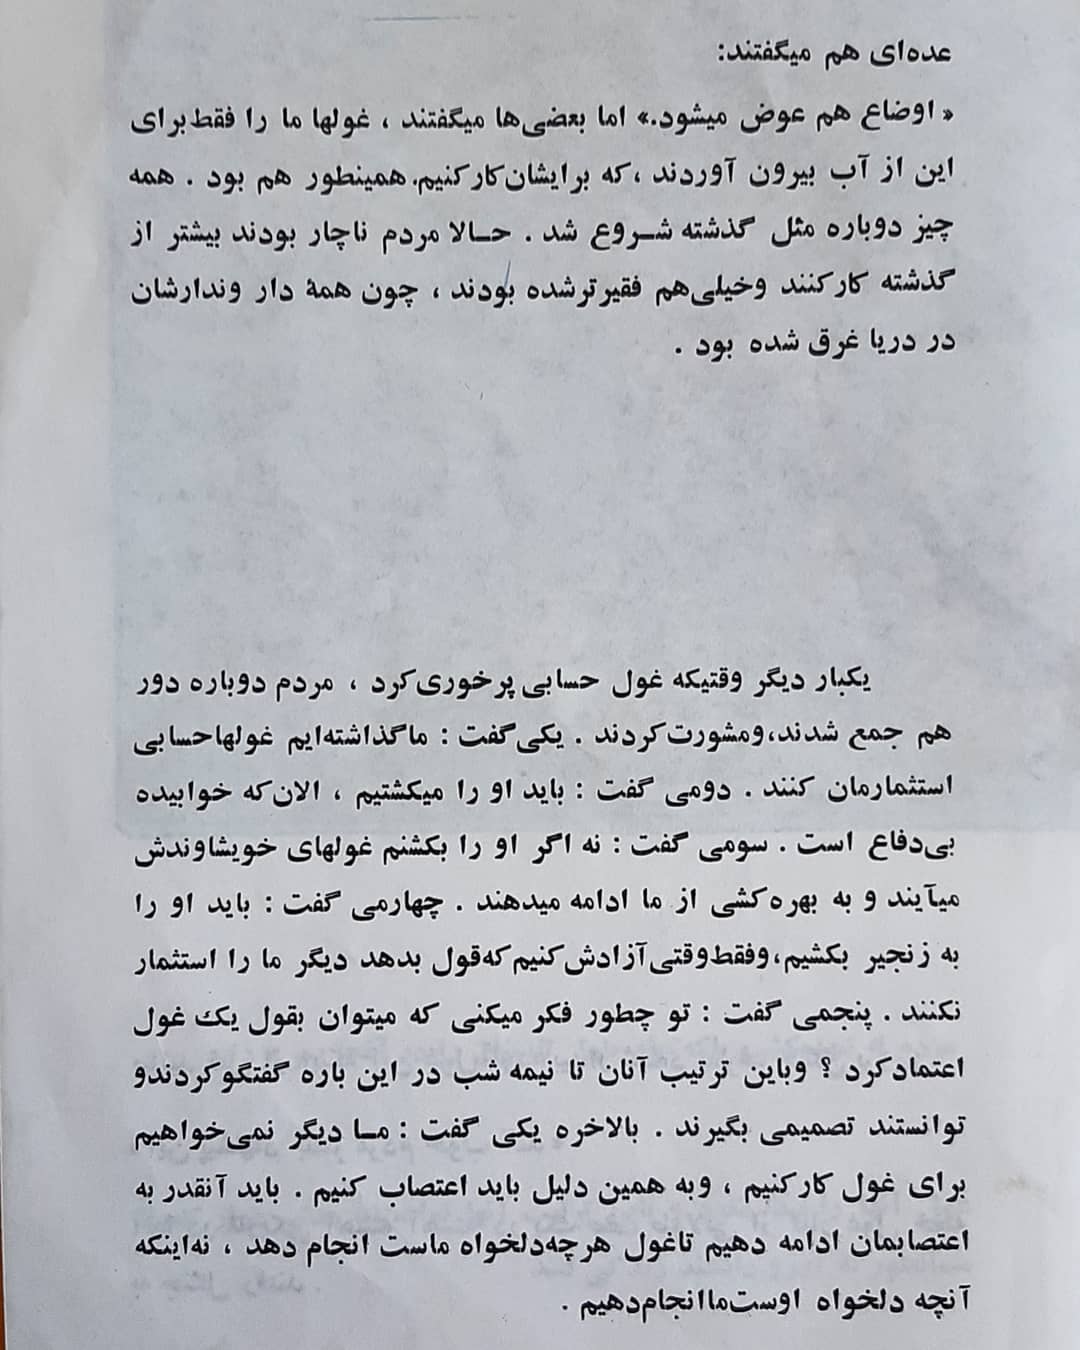 عده‌ای هم میگفتند:
« اوضاع هم عوض میشود.» اما بعضی‌ها میگفتند ، غولها ما را فقط برای
این از آب بیرون آوردند ، که برایشان کار کنیم. همینطور هم بود . همه
چیز دوباره مثل گذشته شـروع شد . حـالا مردم ناچار بودند بیشتر از
گذشته کار کنند وخیلی هم فقیرتر شده بودند ، چون همهٔ دار وندارشان
در دریا غرق شده بود .
یکبار دیگر وقتیکه غول حسابی پرخوری کرد ، مردم دوباره دور
هم جمع شدند، ومشورت کردند . یکی گفت : ما گذاشته‌ایم غولها حسابی
استثمارمان کنند . دومی گفت : باید او را میکشتیم ، الان که خوابیده
بی‌دفاع است . سومی گفت : نه اگر او را بکشنم غولهای خویشاوندش
میآیند و به بهره‌کشی از ما ادامه میدهند . چهارمی گفت : باید او را
به زنجیر بکشیم، وفقط وقتی آزادش کنیم که قول بدهد دیگر ما را استثمار
نکنند . پنجمی گفت : تو چطور فکر میکنی که میتوان بقول یک غول
اعتماد کرد ؟ وباین ترتیب آنان تا نیمه شب در این باره گفتگو کردندو
توانستند تصمیمی بگیرند . بالاخره یکی گفت : مـا دیگر نمی‌خواهیم
برای غول کار کنیم ، وبه همین دلیل باید اعتصاب کنیم . باید آنقدر به
اعتصابمان ادامه دهیم تاغول هرچه دلخواه ماست انجام دهد ، نه‌اینکه
آنچه دلخواه اوست ما انجام دهیم .